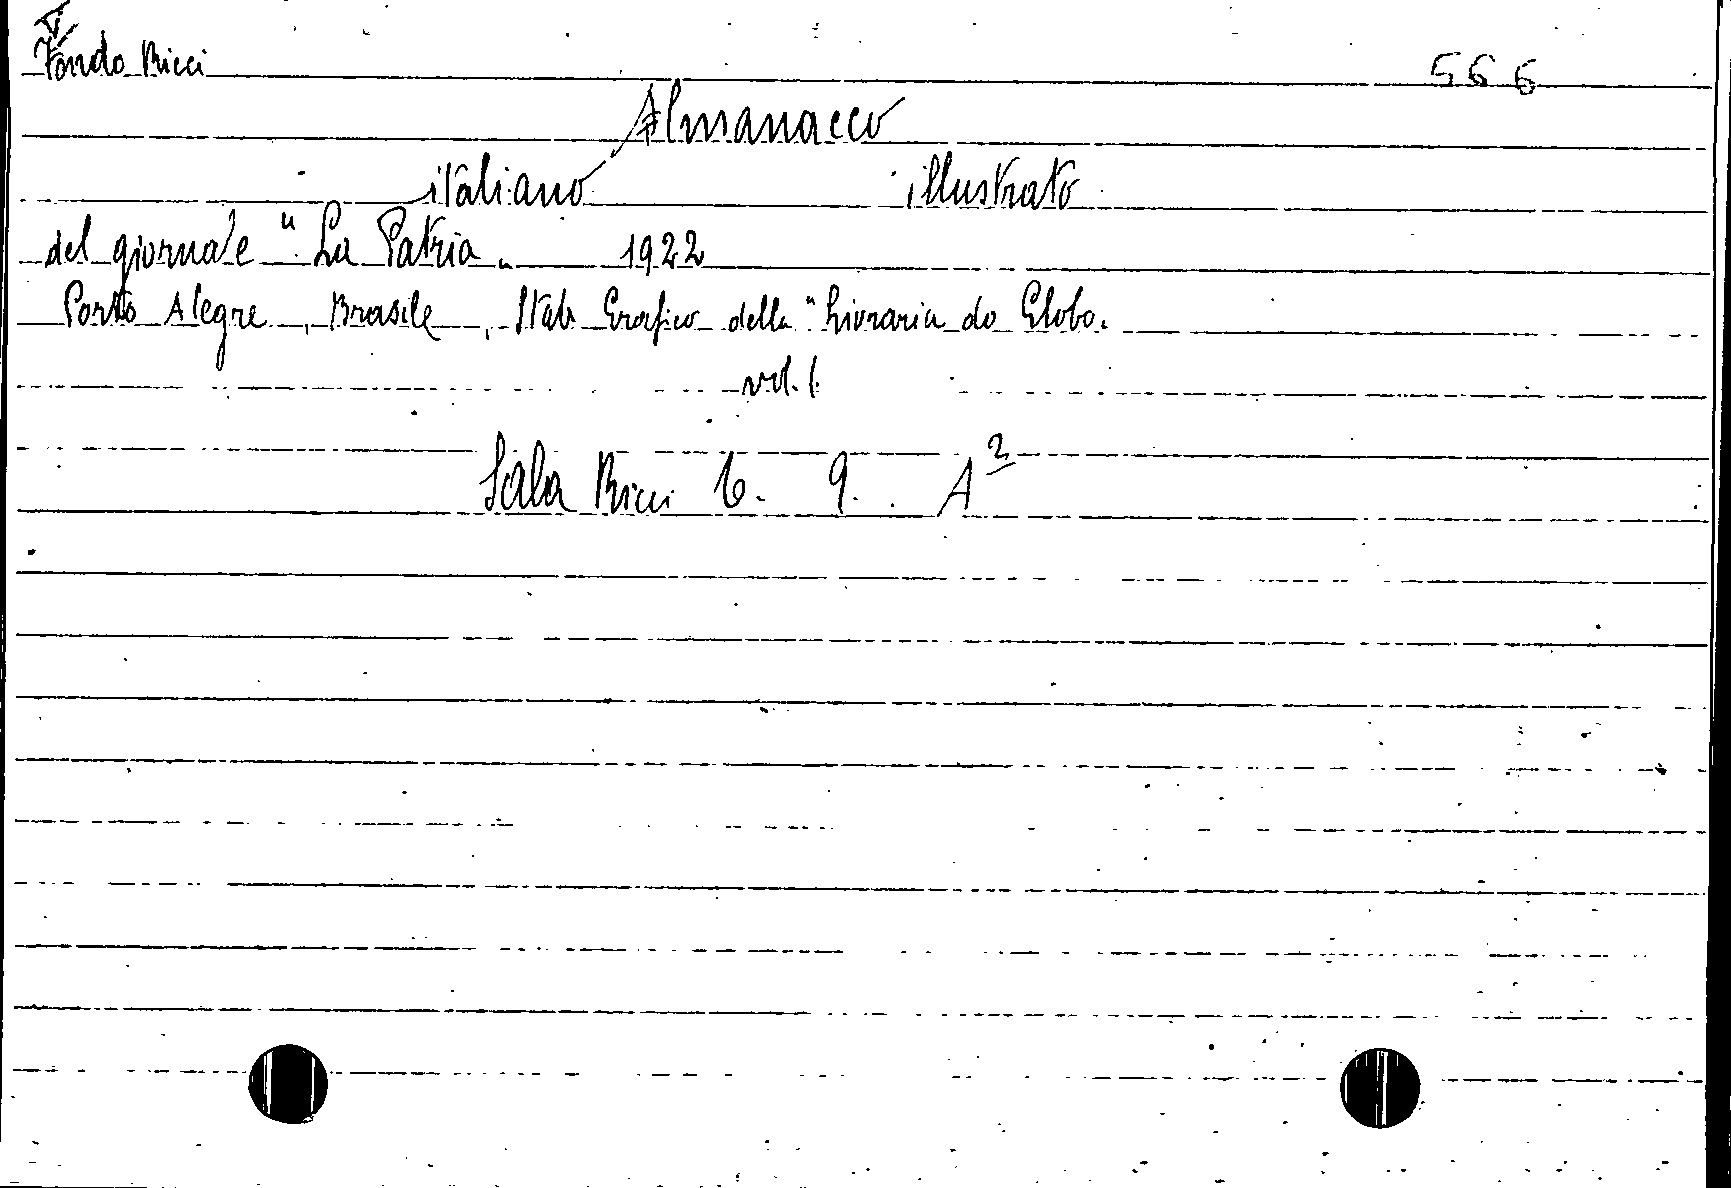 Fondo Ricci 566
Almanacco
italiano illustrato
del giornale "La Patria" 1922
Porto Alegre, Brasile, Stab Grafico della "Livraria do Globo.
vol. 1.
Sala Ricci 6. 9. A²